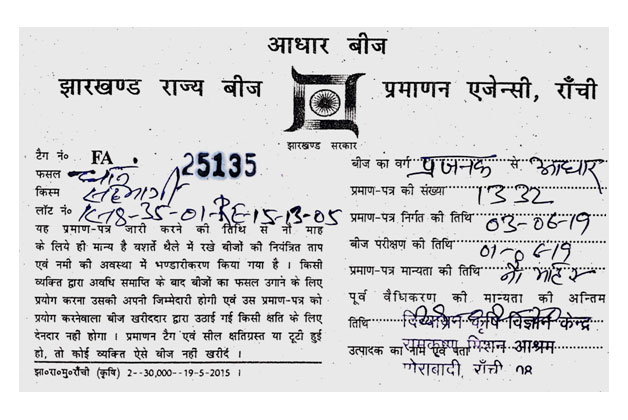 आधार बीज
झारखण्ड राज्य बीज प्रमाणन एजेन्सी, राँची
झारखण्ड सरकार
टैग नं० FA. 25135
फसल धान
किस्म सहभागी
लॉट नं०
यह प्रमाण-पत्र जारी करने की तिथि से नौ माह
के लिये ही मान्य है बशर्ते थैले में रखे बीजों को नियंत्रित ताप
एवं नमी की अवस्था में भण्डारीकरण किया गया है । किसी
व्यक्ति द्वारा अवधि समाप्ति के बाद बीजों का फसल उगाने के लिए
प्रयोग करना उसकी अपनी जिम्मेदारी होगी एवं उस प्रमाण-पत्र को
प्रयोग करनेवाला बीज खरीददार द्वारा उठाई गई किसी क्षति के लिए
देनदार नहीं होगा । प्रमाणन टैग एवं सील क्षतिग्रस्त या टूटी हुई
हो, तो कोई व्यक्ति ऐसे बीज नहीं खरीदें ।
झा०रा०मु०राँची (कृषि) 2--30,000--19-5-2015 ।
बीज का वर्ग प्रजनक से आधार
प्रमाण-पत्र की संख्या 1332
प्रमाण-पत्र निर्गत की तिथि 03-06-19
बीज परीक्षण की तिथि 01-06-19
प्रमाण-पत्र मान्यता की तिथि नौ माह
पूर्व वैधिकरण की मान्यता की अन्तिम
तिथि
दिव्यायन कृषि विज्ञान केन्द्र
उत्पादक का नाम एवं पता
रामकृष्ण मिशन आश्रम
मोराबादी, राँची